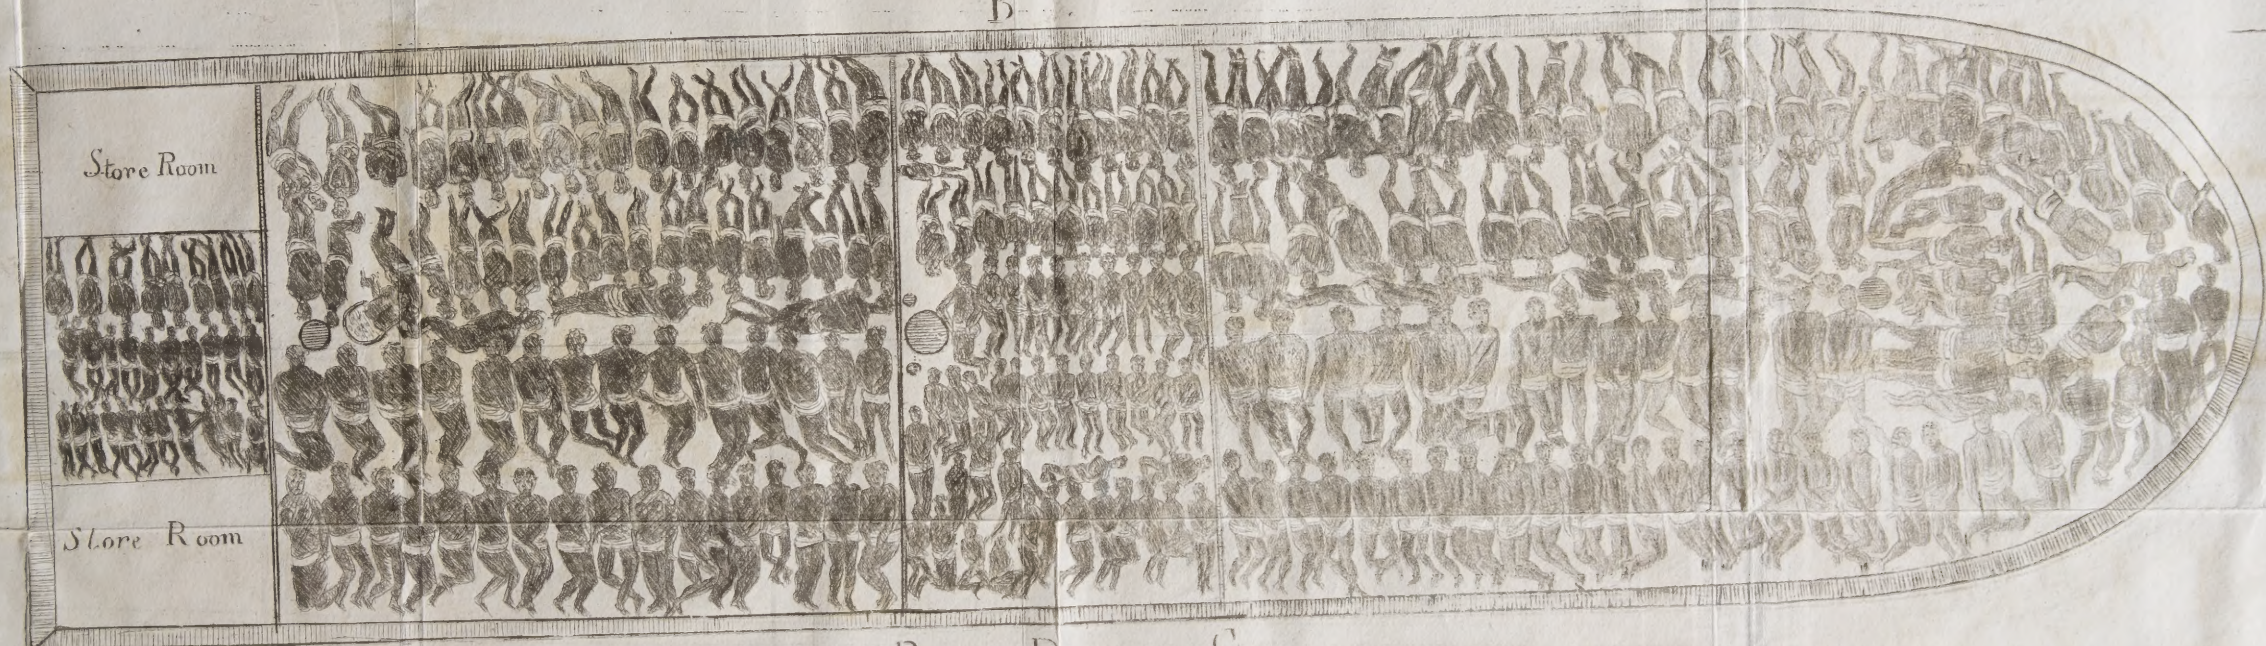 Store Room
Store Room